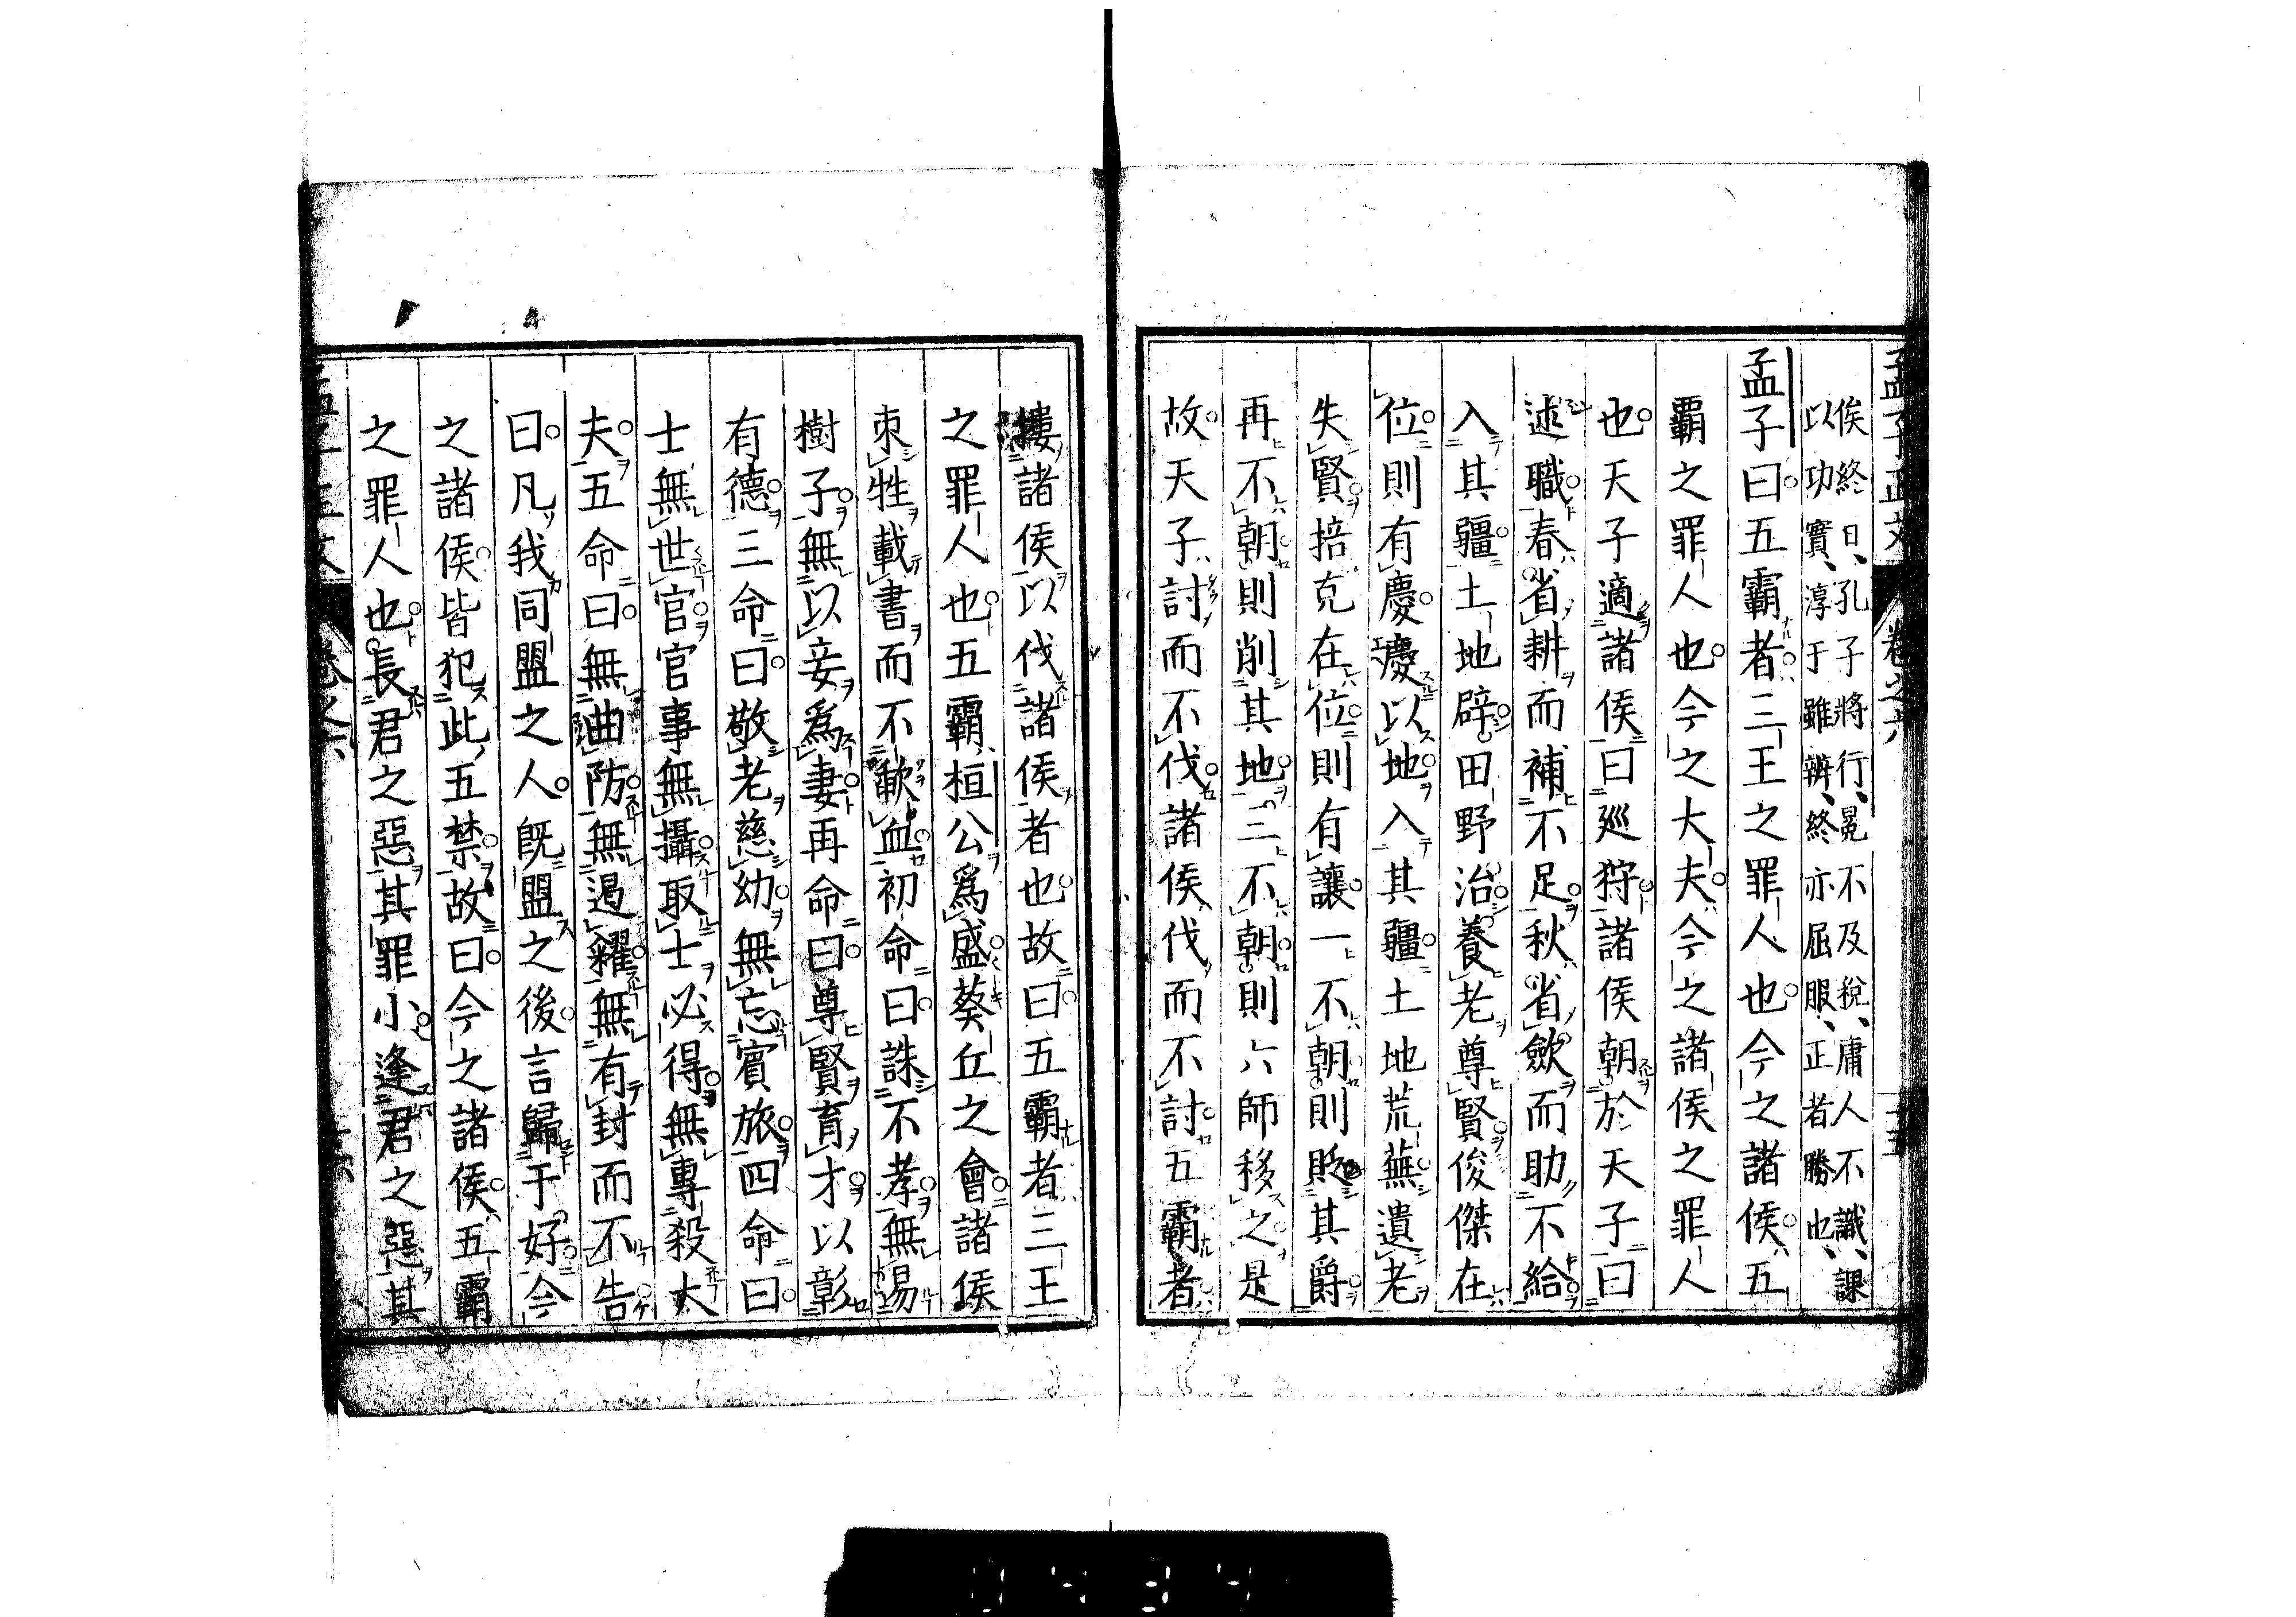 孟子正文 卷之六
俟終日、孔子將行、冕不及稅、庸人不識、課
以功實、淳于雖辨、終亦屈服、正者勝也、
孟子曰五霸者三王之罪人也今之諸侯五
霸之罪人也今之大夫今之諸侯之罪人
也天子適諸侯曰廵狩諸侯朝於天子曰
述職春省耕而補不足秋省歛而助不給
入其疆土地辟田野治養老尊賢俊傑在
位則有慶慶以地入其疆土地荒蕪遺老
失賢掊克在位則有讓一不朝則貶其爵
再不朝則削其地三不朝則六師移之是
故天子討而不伐諸侯伐而不討五霸者
摟諸侯以伐諸侯者也故曰五霸者三王
之罪人也五霸桓公爲盛葵丘之會諸侯
束牲載書而不歃血初命曰誅不孝無易
樹子無以妾爲妻再命曰尊賢育才以彰
有德三命曰敬老慈幼無忘賓旅四命曰
士無世官官事無攝取士必得無專殺大
夫五命曰無曲防無遏糴無有封而不告
曰凡我同盟之人既盟之後言歸于好今
之諸侯皆犯此五禁故曰今之諸侯五霸
之罪人也長君之惡其罪小逢君之惡其
卷之六